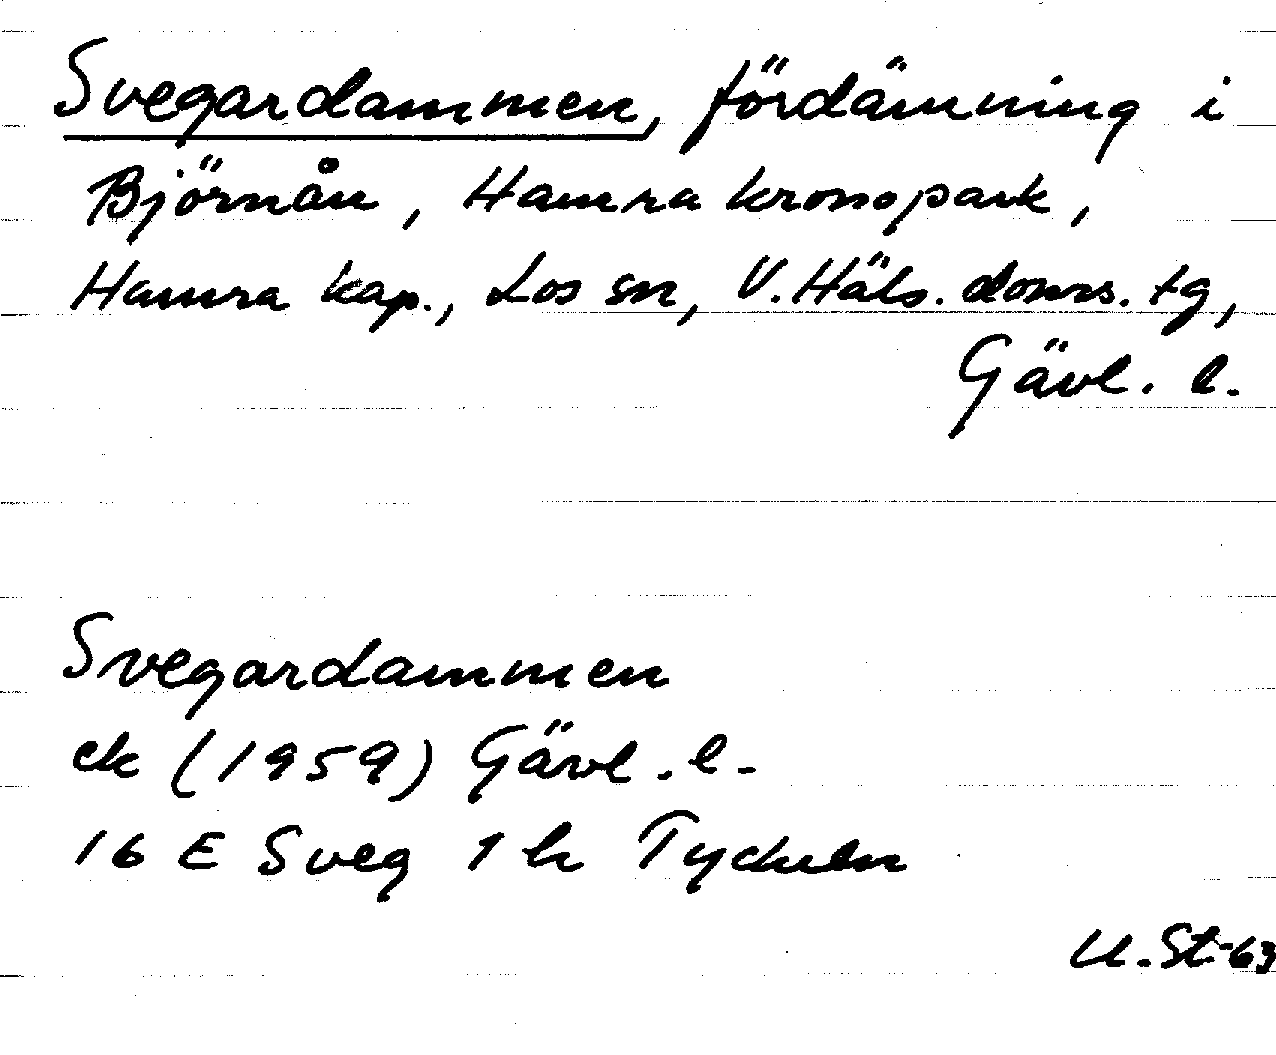 Svegardammen, fördämning i
Björnån, Hamra kronopark,
Hamra kap., Los sn, V. Häls. doms. tg,
Gävl. l.
Svegardammen
ek (1959) Gävl. l.
16 E Sveg 1 h Tyckeln
U. St-63